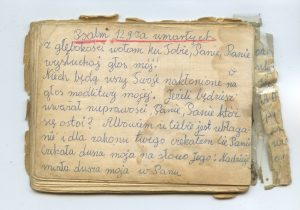 Psalm 129 za umarłych
z głębokości wołam ku Tobie, Panie, Panie
wysłuchaj głos mój!
Niech będą uszy Twoje nakłonione na
głos modlitwy mojej. Jeżeli będziesz
uważał nieprawości Panie, Panie któż
się ostoi? Albowiem u Ciebie jest ubłaga
nie i dla zakonu Twego czekałem Cię Panie
Czekała dusza moja na słowo Jego! Nadzieję
miała dusza moja w Panu